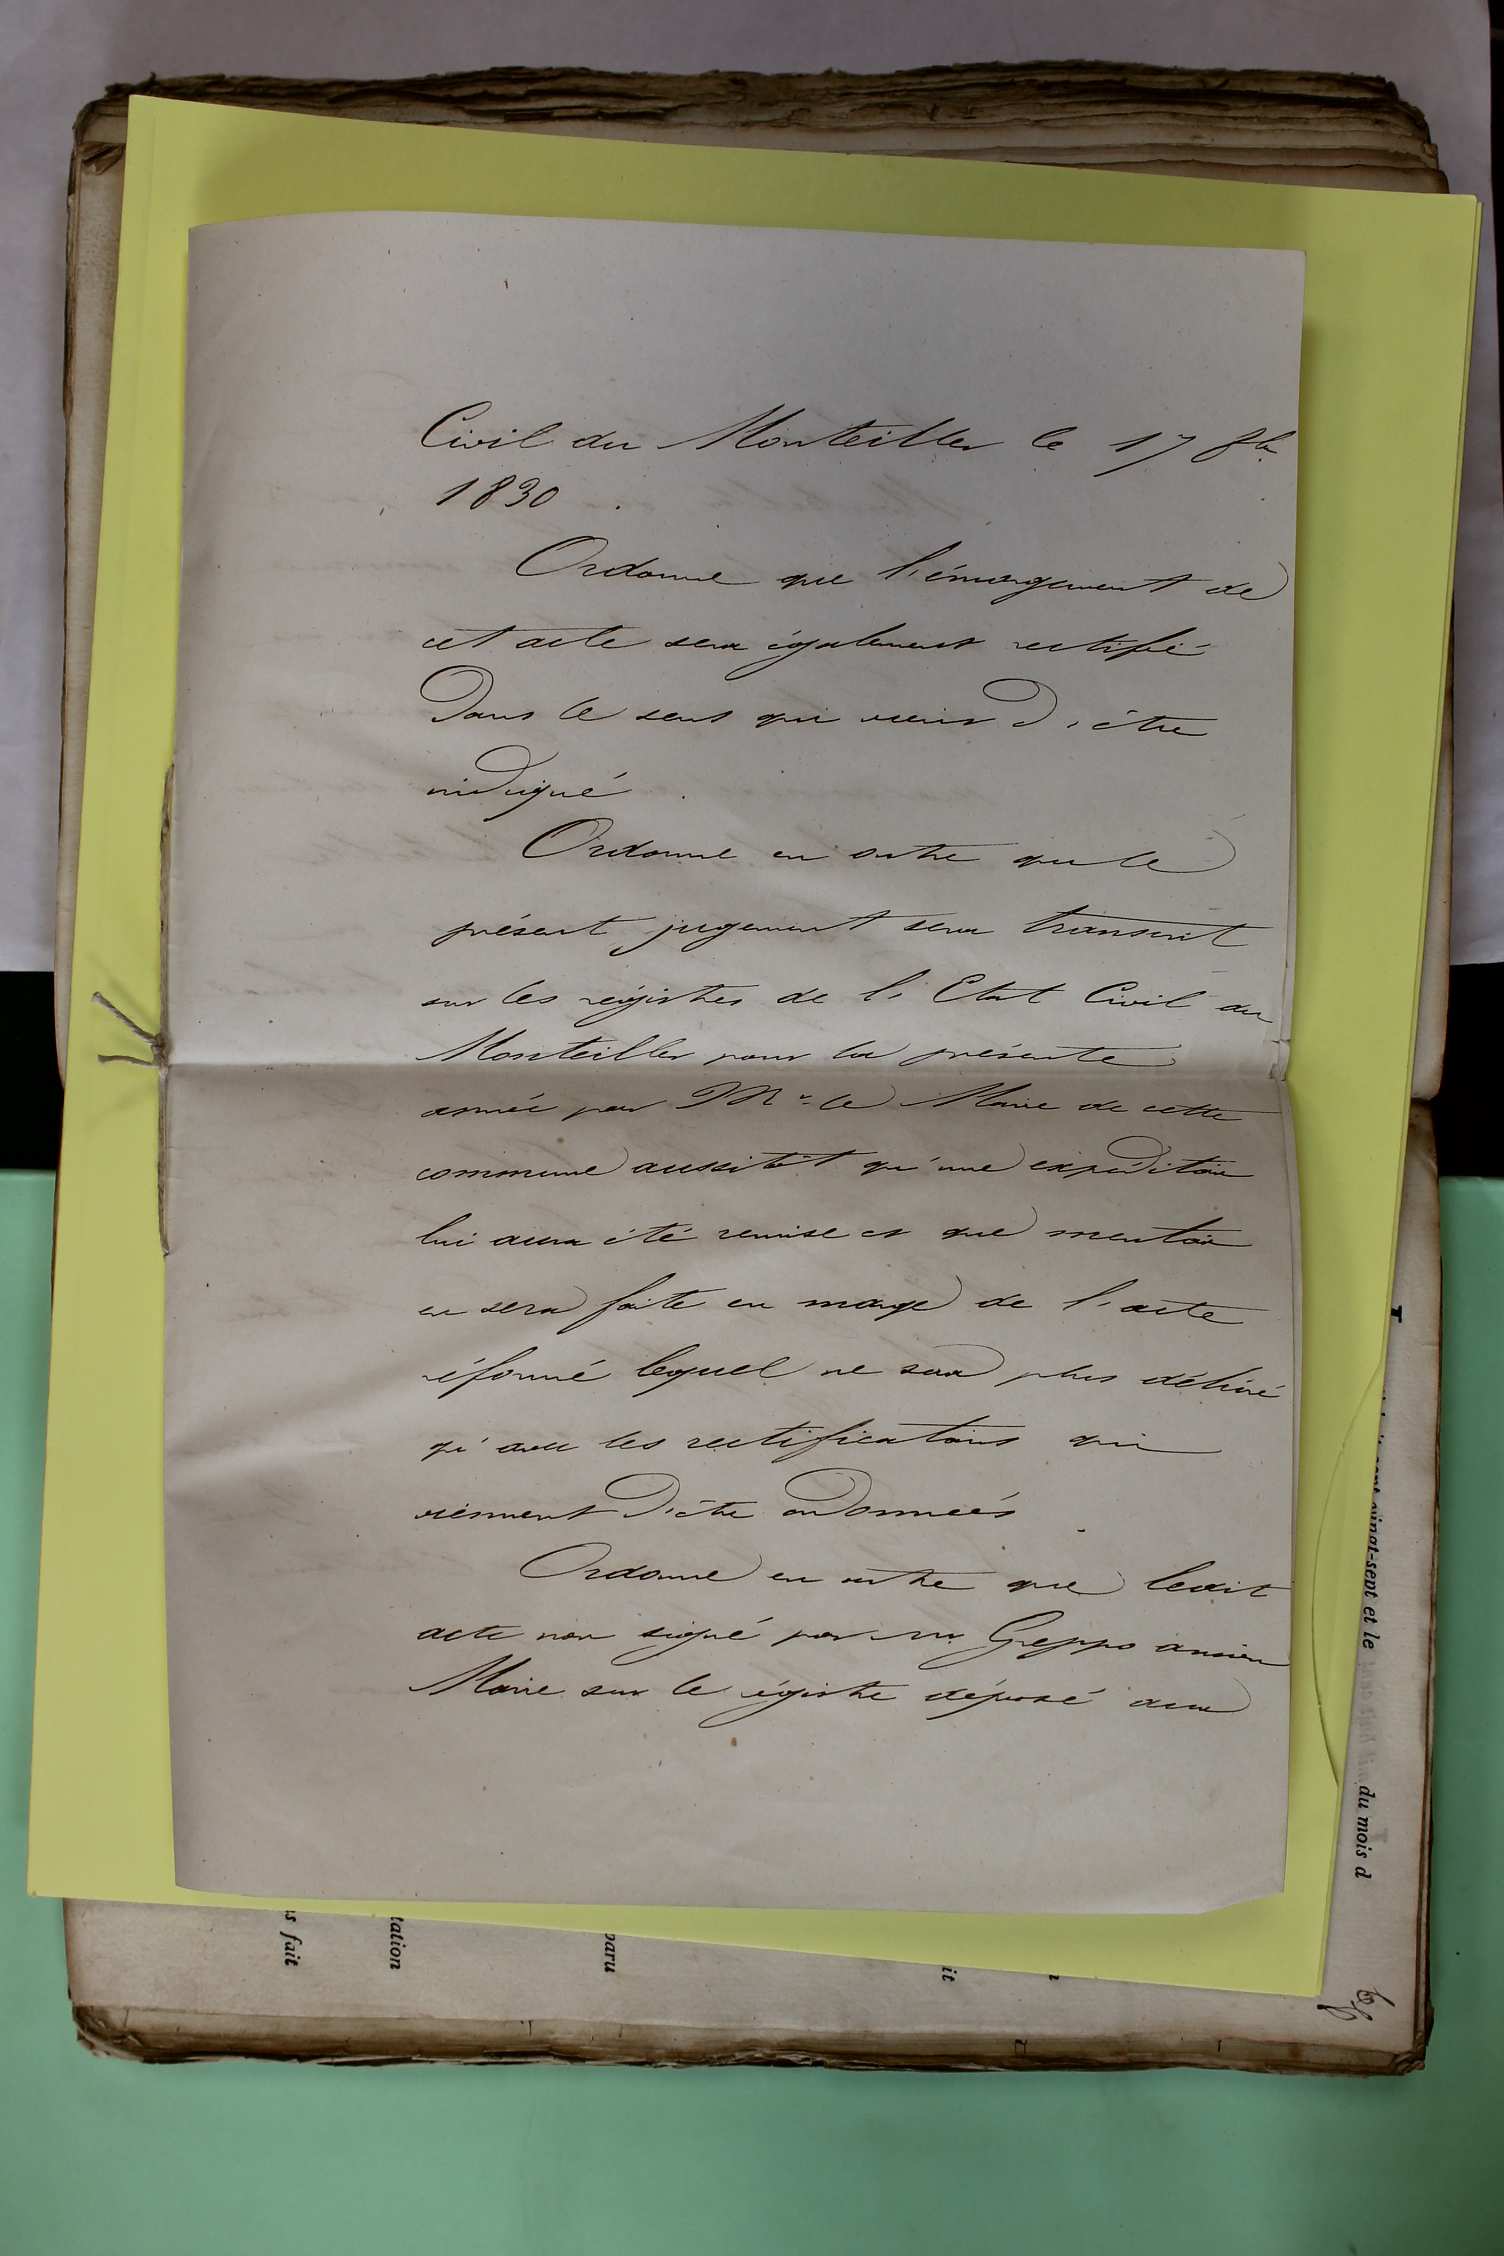 Civil du Monteiller le 17 8b.
1830.
Ordonne que l'émargement de
cet acte sera également rectifié
dans le sens qui vient d'être
indiqué.
Ordonne en outre que le
présent jugement sera transcrit
sur les régistres de l'Etat Civil du
Monteiller pour la présente
année par Mr. le Maire de cette
commune aussitôt qu'une expédition
lui aura été remise et que mention
en sera faite en marge de l'acte
réformé lequel ne sera plus délivré
qu'avec les rectifications qui
viennent d'être ordonnées.
Ordonne en outre que ledit
acte non signé par m. Greppo ancien
Maire sur le régistre déposé aux
vingt-sept et le
du mois d
s fait
tation
paru
it